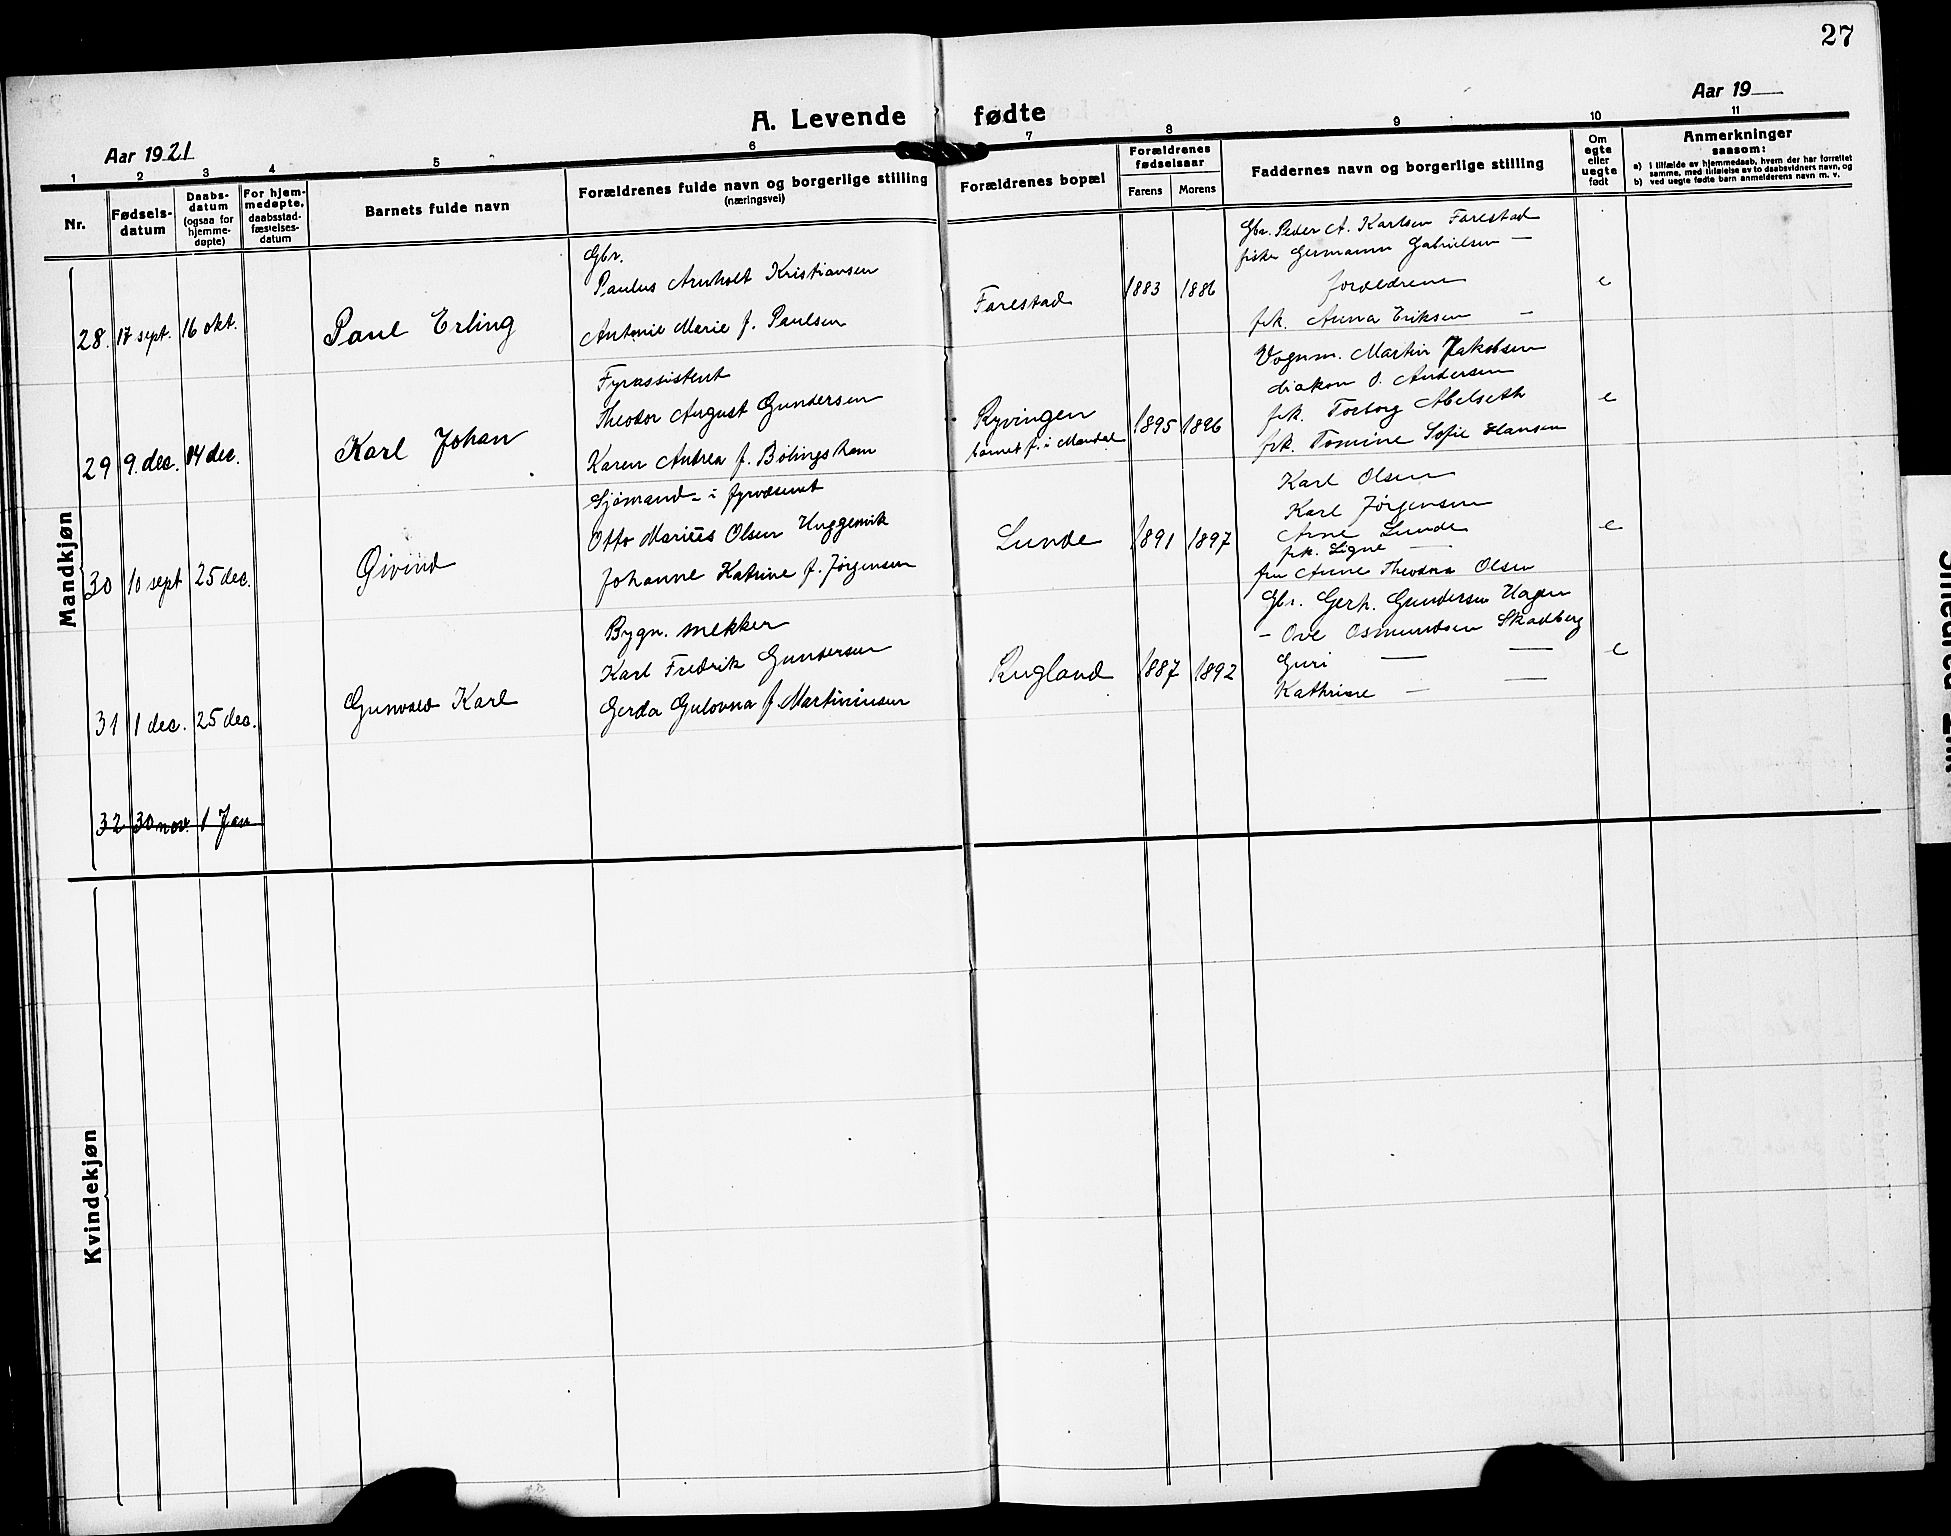 27
Aar 1921
A. Levende fødte
Aar 19
1 2 3 4 5 6 7 8 9 10 11
Nr.
Fødsels-
datum
Daabs-
datum
(ogsaa for
hjemme-
døpte)
For hjem-
medøpte,
daabsstad-
fæstelses-
datum
Barnets fulde navn
Forældrenes fulde navn og borgerlige stilling
(næringsvei)
Forældrenes bopæl
Forældrenes
fødselsaar
Farens Morens
Faddernes navn og borgerlige stilling
Om
egte
eller
uegte
født
Anmerkninger
saasom:
a) I tilfælde av hjemmedaab, hvem der har forrettet
samme, med tilføielse av to daabsvidners navn, og
b) ved uegte fødte barn anmelderens navn m. v.
Mandkjøn
28. 17 sept. 16 okt.
Paul Erling
Gbr.
Paulus Arnholt Kristiansen
Antonie Marie f. Paulsen
Farestad
1883 1886
Gbr. Peder A. Karlsen Farestad
fisker Germann Gabrielsen —
forældrene
frk. Anna Eriksen —
e
29 9. dec. 14 dec.
Karl Johan
Fyrassistent
Theodor August Gundersen
Karen Andrea f. Bölingsham
Ryvingen
barnet f. i Mandal
1895 1896
Vognm. Martin Jakobsen
diakon O. Andersen
frk. Torborg Abelseth
frk. Tomine Sofie Hansen
e
30 10 sept 25 dec.
Öivind
Sjömand i fyrvæsenet
Otto Marius Olsen Uggevik
Johanne Katrine f. Jørgensen
Lunde
1891 1897
Karl Olsen
Karl Jørgensen
Arne Lunde
frk. Signe —
fru Anne Theodora Olsen
e
31 1 dec. 25 dec.
Gunvald Karl
Bygn. snekker
Karl Fredrik Gundersen
Gerda Gulovna f. Martiniusen
Rugland
1887 1892
Gbr. Gerh. Gundersen Hagen
— Ove Osmundsen Skadberg
Guri — —
Kathrine — —
e
32 30 nov. 1 Jan
Kvindekjøn